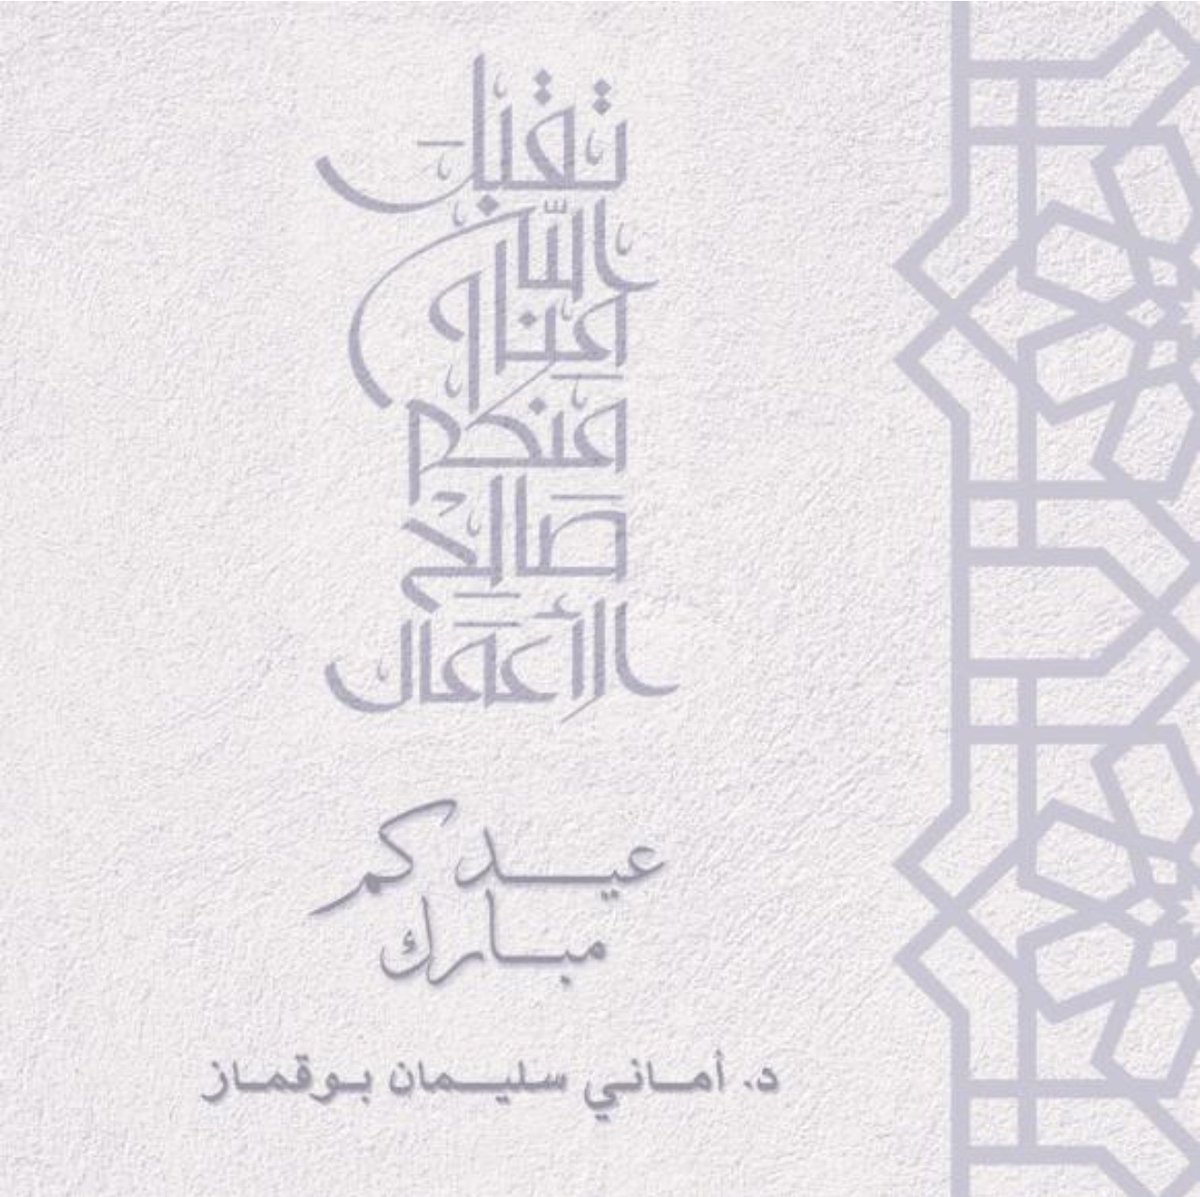 تقبل
الله
منا و
منكم
صالح
الأعمال
عيدكم
مبارك
د. أماني سليمان بوقماز